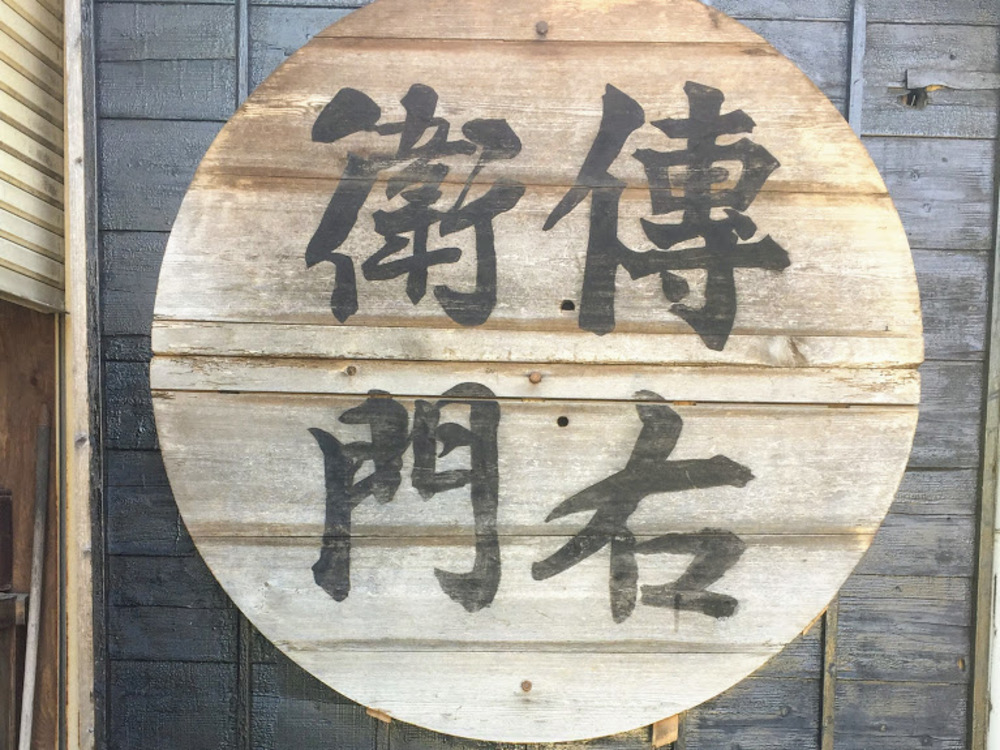 傳右
衛門